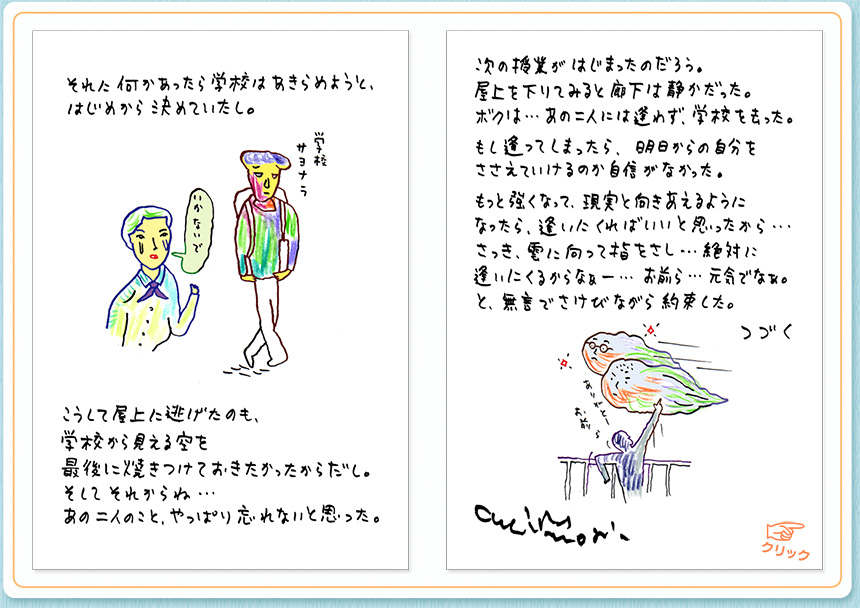 それに何かあったら学校はあきらめようと、
はじめから決めていたし。
学校
サヨナラ
いかないで
こうして屋上に逃げたのも、
学校から見える空を
最後に焼きつけておきたかったからだし。
そしてそれからね…
あの二人のこと、やっぱり忘れないと思った。
次の授業がはじまったのだろう。
屋上を下りてみると廊下は静かだった。
ボクは…あの二人には逢わず、学校を去った。
もし逢ってしまったら、明日からの自分を
ささえていけるのか自信がなかった。
もっと強くなって、現実と向きあえるように
なったら、逢いにくればいいと思ったから…
さっき、雲に向って指をさし…絶対に
逢いにくるからなぁー…お前ら…元気でなぁ。
と、無言でさけびながら約束した。
つづく
ありがと
お前ら
クリック